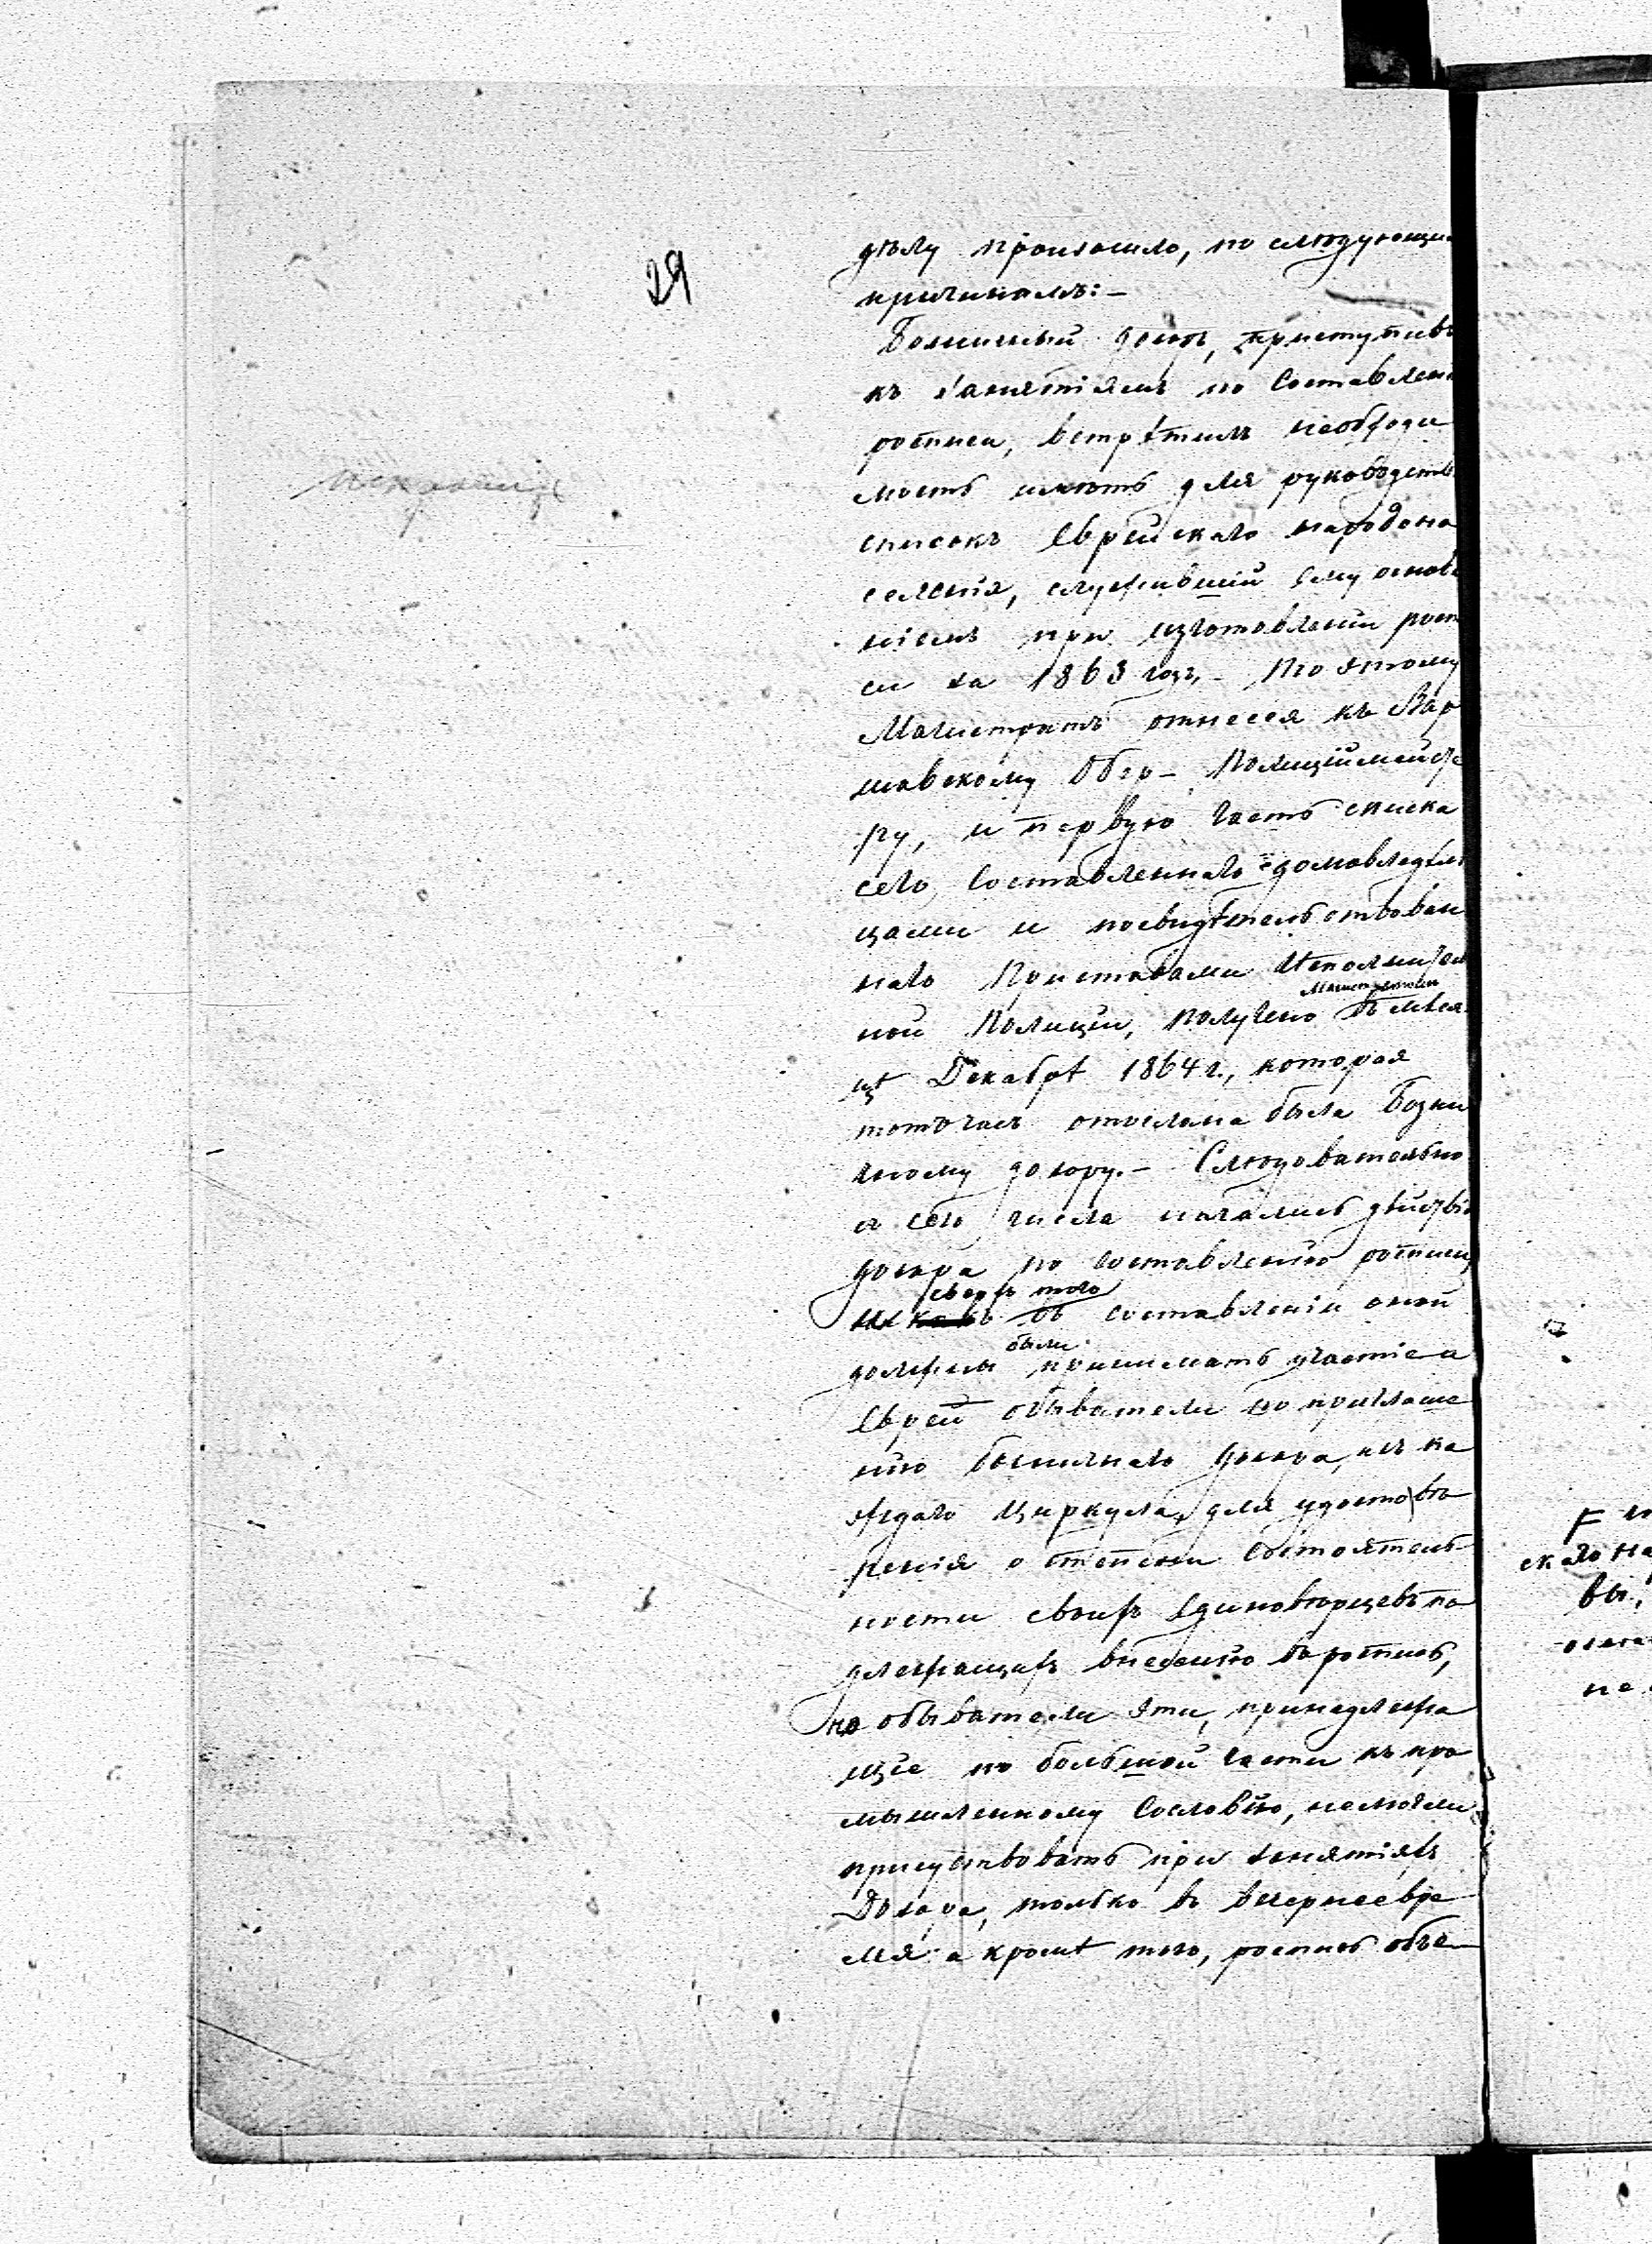 29
дѣлу произошло, по слѣдующи
причинамъ: —
Божничный дозоръ, приступивъ
къ занятіямъ по составлен
росписи, встрѣтилъ необходи
мость имѣть для руководств
списокъ Еврейскаго народона
селенія, служившій ему основа
ніемъ при изготовленіи росп
си за 1863 годъ. — По этому
Магистратъ отнесся къ Вар
шавскому Обер-Полиціймейсте
ру, и первую часть списка
сего, составленнаго домовладѣль
цами и посвидѣтельствован
наго Приставами Исполнитель
Магистратомъ
ной Полиціи, получено въ мѣся
цѣ Декабрѣ 1864 г., которая
тотчасъ отослана была Божни
чному дозору. — Слѣдовательно
съ сего числа начались дѣйствія
дозора по составленію росписи,
сверхъ того
и какъ въ составленіи оной
были
должны принимать участіе и
Евреи обыватели по приглаше
нію божничнаго дозора, изъ ка
ждаго Циркула, для удостовѣ
ренія о степени состоятель-
ности своихъ единовѣрцевъ по
длежащихъ внесенію въ роспись,
но обыватели эти, принадлежа
щіе по большой части къ про
мышленному сословію, не могли
присутствовать при занятіяхъ
Дозора, только въ вечернее вре
мя а кромѣ того, роспись обѣ-
скаго на
вы,
не